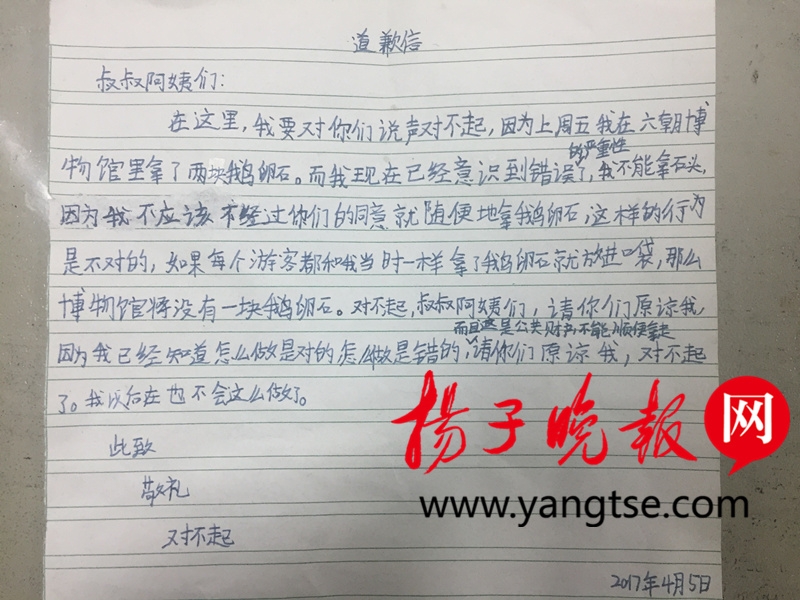 道歉信
叔叔阿姨们：
在这里，我要对你们说声对不起，因为上周五我在六朝博
物馆里拿了两块鹅卵石。而我现在已经意识到错误的严重性了，我不能拿石头，
因为我不应该不经过你们的同意就随便地拿鹅卵石，这样的行为
是不对的，如果每个游客都和我当时一样拿了鹅卵石就放进口袋，那么
博物馆将没有一块鹅卵石。对不起，叔叔阿姨们，请你们原谅我，
而且这是公共财产，不能顺便拿走
因为我已经知道怎么做是对的怎么做是错的，请你们原谅我，对不起
了。我以后在也不会这么做了。
此致
敬礼
对不起
2017年4月5日
扬子晚报网
www.yangtse.com